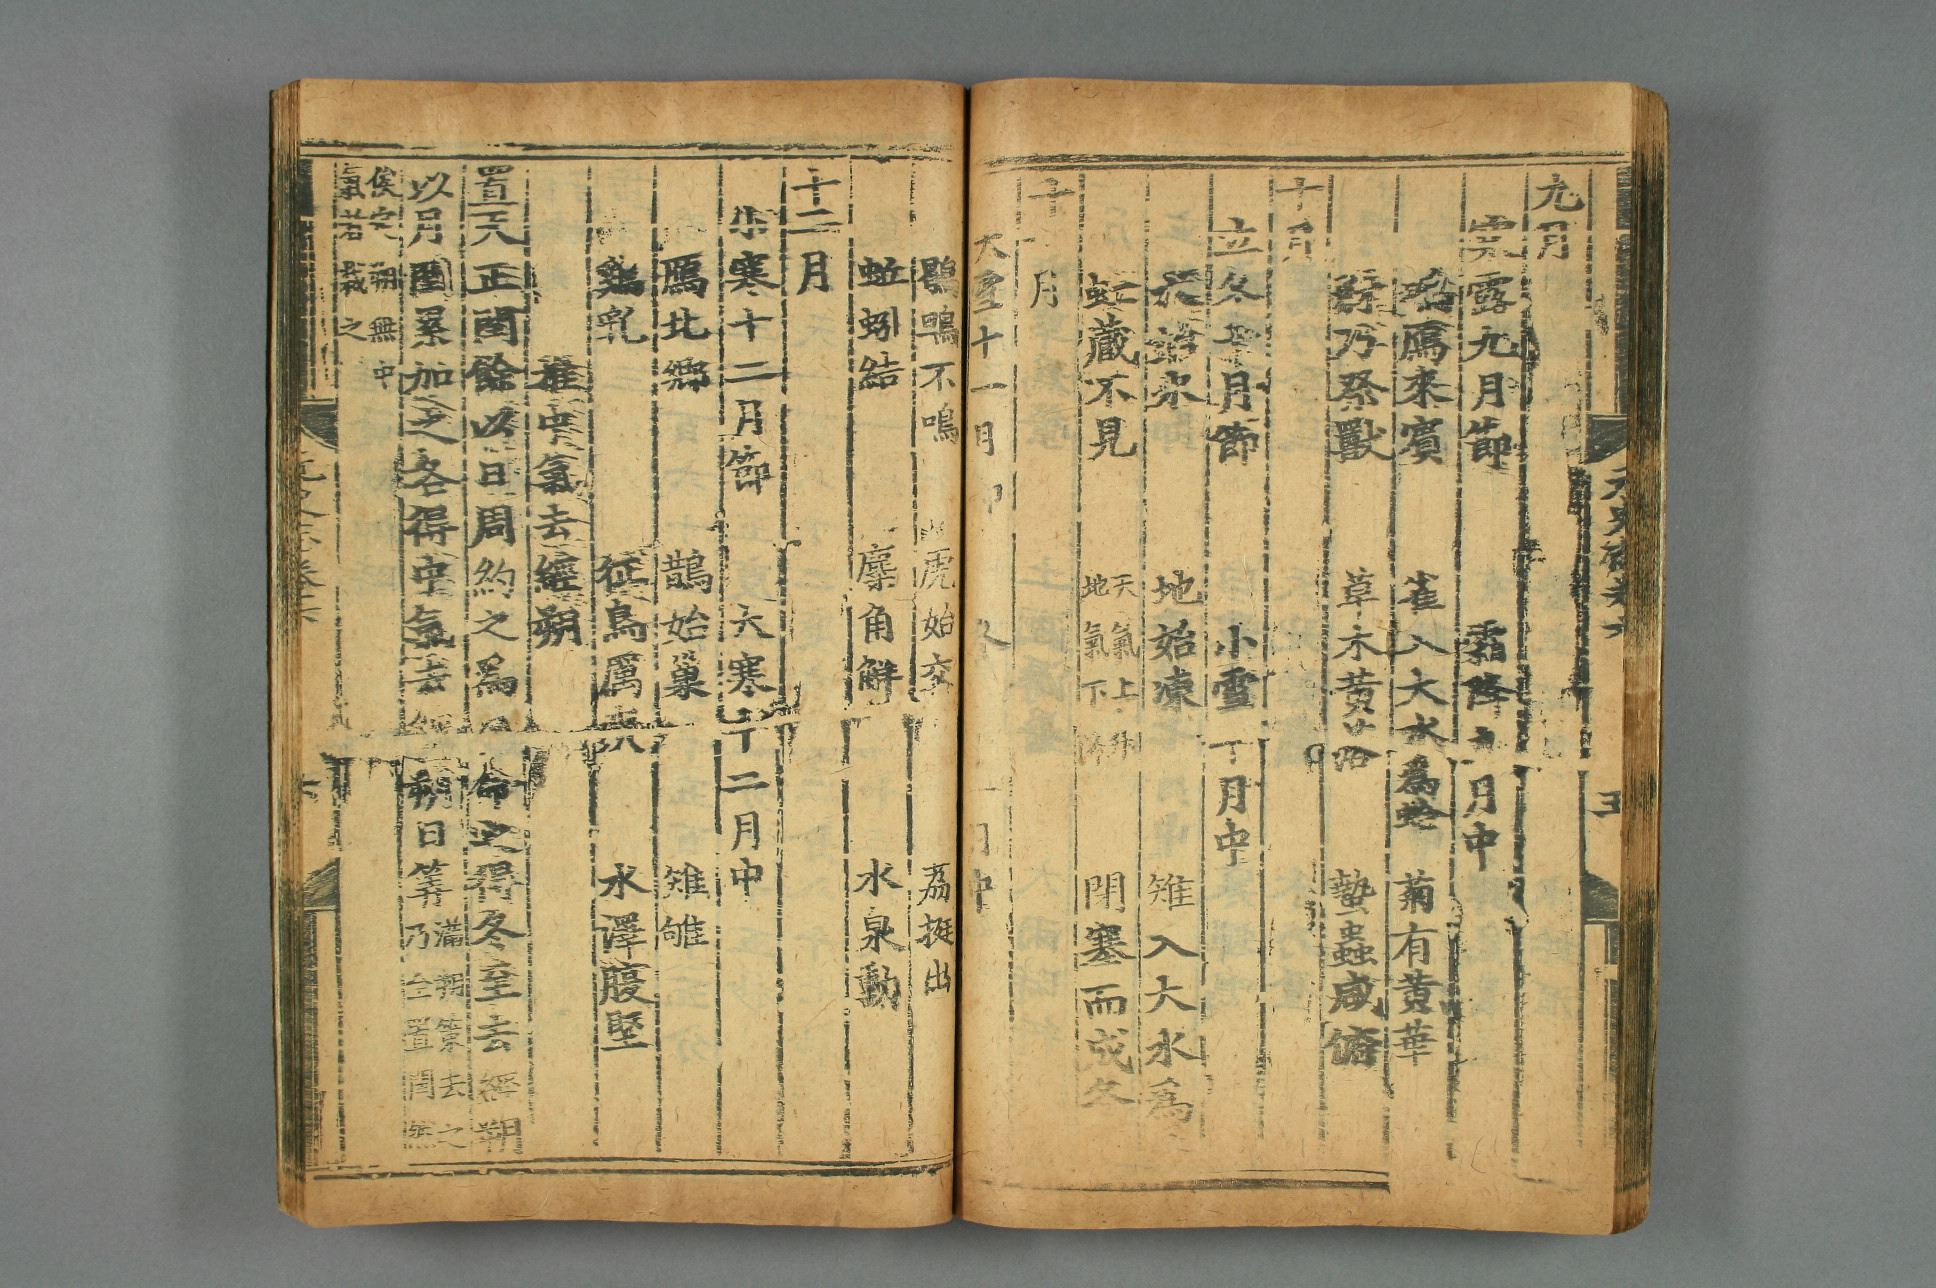 九月
寒露九月節　霜降九月中
鴻鴈來賓　雀入大水爲蛤　菊有黃華
豺乃祭獸　草木黃落　蟄蟲咸俯
十月
立冬十月節　小雪十月中
水始冰　地始凍　雉入大水爲
虹藏不見　天氣上升地氣下降　閉塞而成冬
十一月
大雪十一月節　冬　十一月中
鶡鴠不鳴　虎始交　荔挺出
蚯蚓結　麋角解　水泉動
十二月
小寒十二月節　大寒十二月中
鴈北鄉　鵲始巢　雉雊
雞乳　征鳥厲疾　水澤腹堅
推中氣去經朔
置天正閏餘以日周約之爲日命之得冬至去經朔
以月閏累加之各得中氣去經朔日筭滿朔策去之乃全置閏然
俟定朔無中氣者裁之
元史志卷六
五